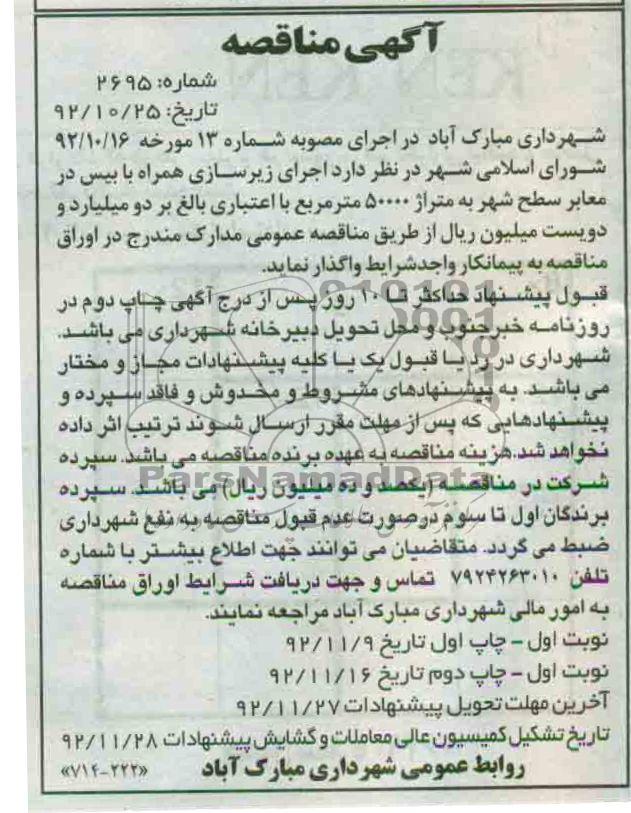 آگهی مناقصه
شماره: ۲۶۹۵
تاریخ: ۹۲/۱۰/۲۵
شهرداری مبارک آباد در اجرای مصوبه شماره ۱۳ مورخه ۹۲/۱۰/۱۶
شورای اسلامی شهر در نظر دارد اجرای زیرسازی همراه با بیس در
معابر سطح شهر به متراژ ۵۰۰۰۰ مترمربع با اعتباری بالغ بر دو میلیارد و
دویست میلیون ریال از طریق مناقصه عمومی مدارک مندرج در اوراق
مناقصه به پیمانکار واجدشرایط واگذار نماید.
قبول پیشنهاد حداکثر تا ۱۰ روز پس از درج آگهی چاپ دوم در
روزنامه خبرجنوب و محل تحویل دبیرخانه شهرداری می باشد.
شهرداری در رد یا قبول یک یا کلیه پیشنهادات مجاز و مختار
می باشد. به پیشنهادهای مشروط و مخدوش و فاقد سپرده و
پیشنهادهایی که پس از مهلت مقرر ارسال شوند ترتیب اثر داده
نخواهد شد.هزینه مناقصه به عهده برنده مناقصه می باشد. سپرده
شرکت در مناقصه (یکصد و ده میلیون ریال) می باشد. سپرده
برندگان اول تا سوم درصورت عدم قبول مناقصه به نفع شهرداری
ضبط می گردد. متقاضیان می توانند جهت اطلاع بیشتر با شماره
تلفن ۷۹۲۴۲۶۳۰۱۰ تماس و جهت دریافت شرایط اوراق مناقصه
به امور مالی شهرداری مبارک آباد مراجعه نمایند.
نوبت اول – چاپ اول تاریخ ۹۲/۱۱/۹
نوبت اول – چاپ دوم تاریخ ۹۲/۱۱/۱۶
آخرین مهلت تحویل پیشنهادات ۹۲/۱۱/۲۷
تاریخ تشکیل کمیسیون عالی معاملات و گشایش پیشنهادات ۹۲/۱۱/۲۸
روابط عمومی شهرداری مبارک آباد «۷۱۴-۲۲۲»
ParsNamadData